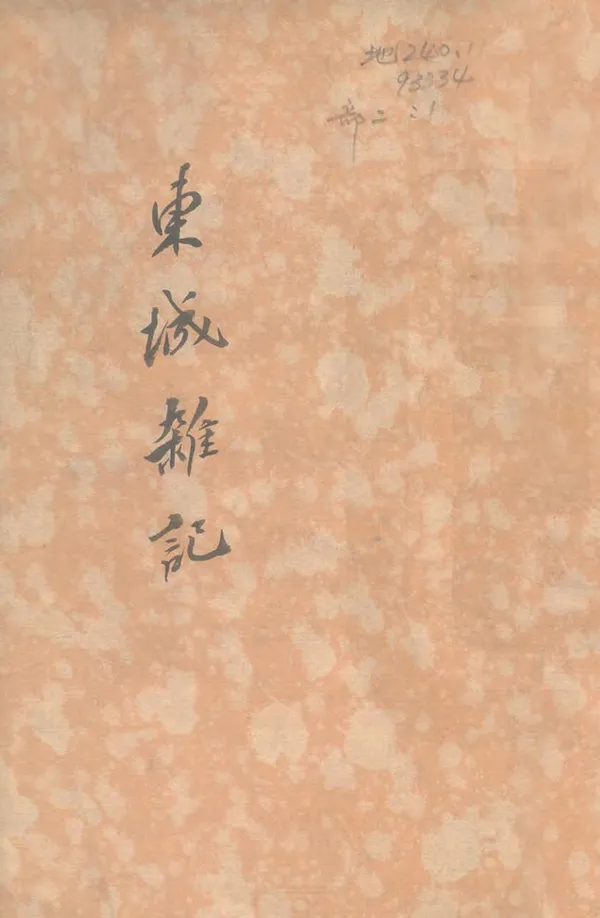 地240.1
93334
部二:1
東城雜記